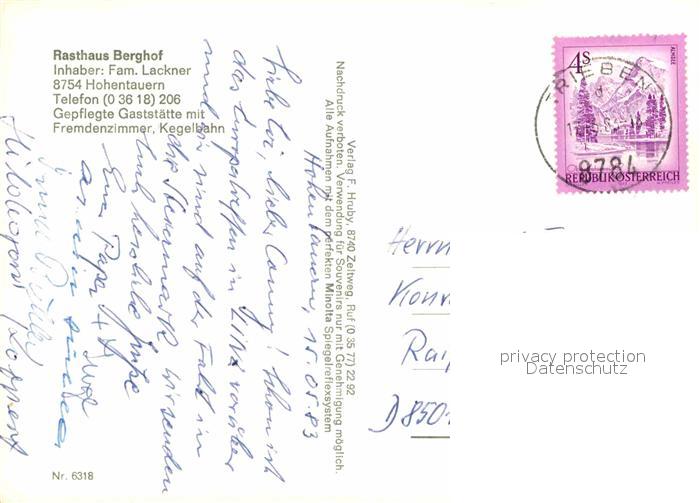 Rasthaus Berghof
Inhaber: Fam. Lackner
8754 Hohentauern
Telefon (0 36 18) 206
Gepflegte Gaststätte mit
Fremdenzimmer, Kegelbahn
Hohentauern, 15.05.83
Liebe Loi, lieber Conny! Schon ist
das Europatreffen in Linz vorüber
und wir sind auf der Fahrt in
die Steiermark. Wir senden
Euch herzliche Grüße
Eure Papa
Verlag F. Hruby, 8740 Zeltweg, Ruf (0 35 77) 22 92
Nachdruck verboten. Verwendung für Souvenirs nur mit Genehmigung möglich.
Alle Aufnahmen mit dem perfekten Minolta Spiegelreflexsystem
4S
ALMSEE
REPUBLIK ÖSTERREICH
RIEBEN
8784
Herrn
Konr
D 850
privacy protection
Datenschutz
Nr. 6318